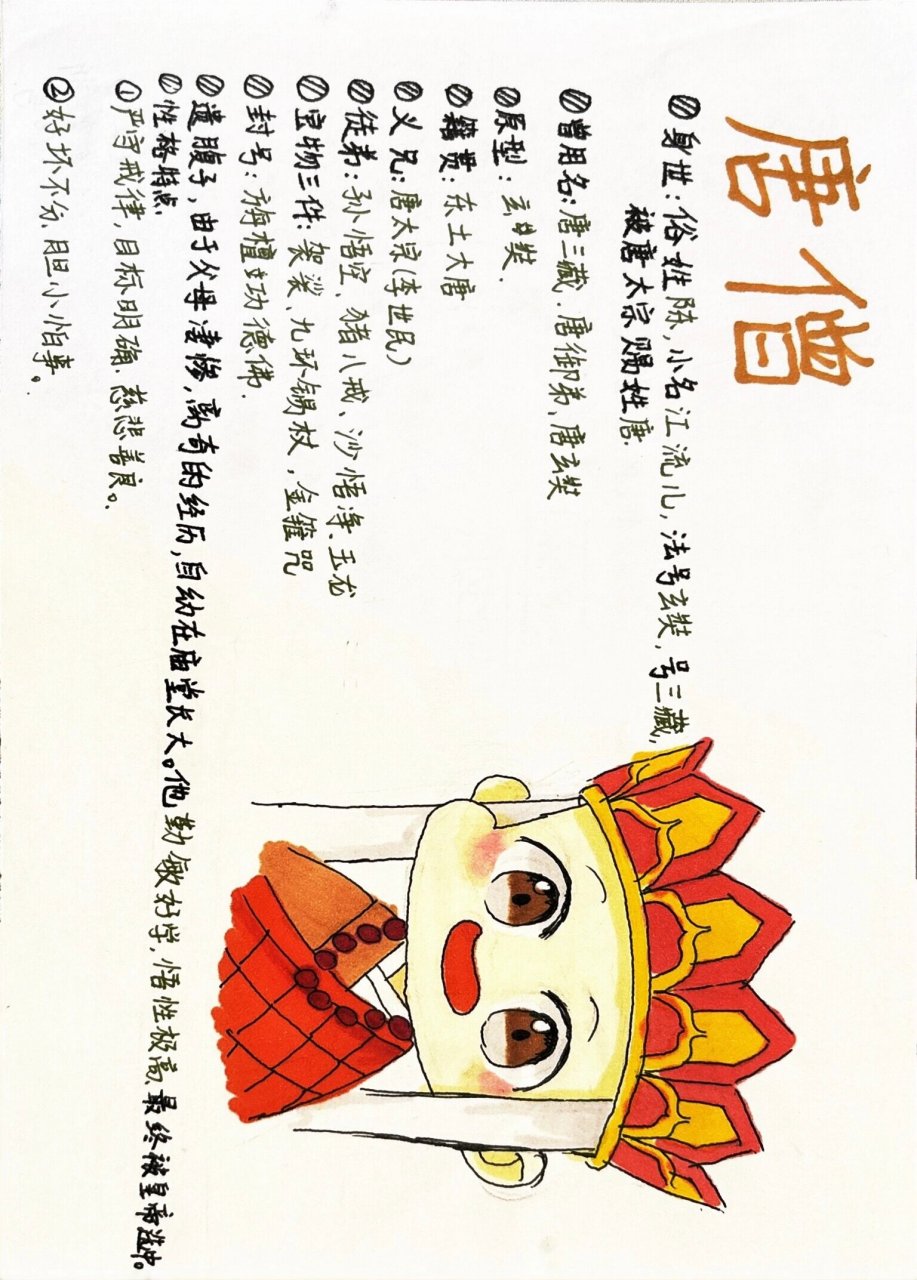 唐僧
身世：俗姓陈，小名江流儿，法号玄奘，号三藏，
被唐太宗赐姓唐.
曾用名：唐三藏.唐御弟、唐玄奘
原型：玄奘.
籍贯：东土大唐
义兄：唐太宗(李世民)
徒弟：孙悟空、猪八戒、沙悟净、玉龙
宝物三件：袈裟、九环锡杖，金箍咒
封号：旃檀功德佛.
遗腹子，由于父母凄惨，离奇的经历，自幼在庙堂长大。他勤敏好学，悟性极高，最终被皇帝选中。
性格特点
①严守戒律，目标明确.慈悲善良。
②好坏不分，胆小怕事。